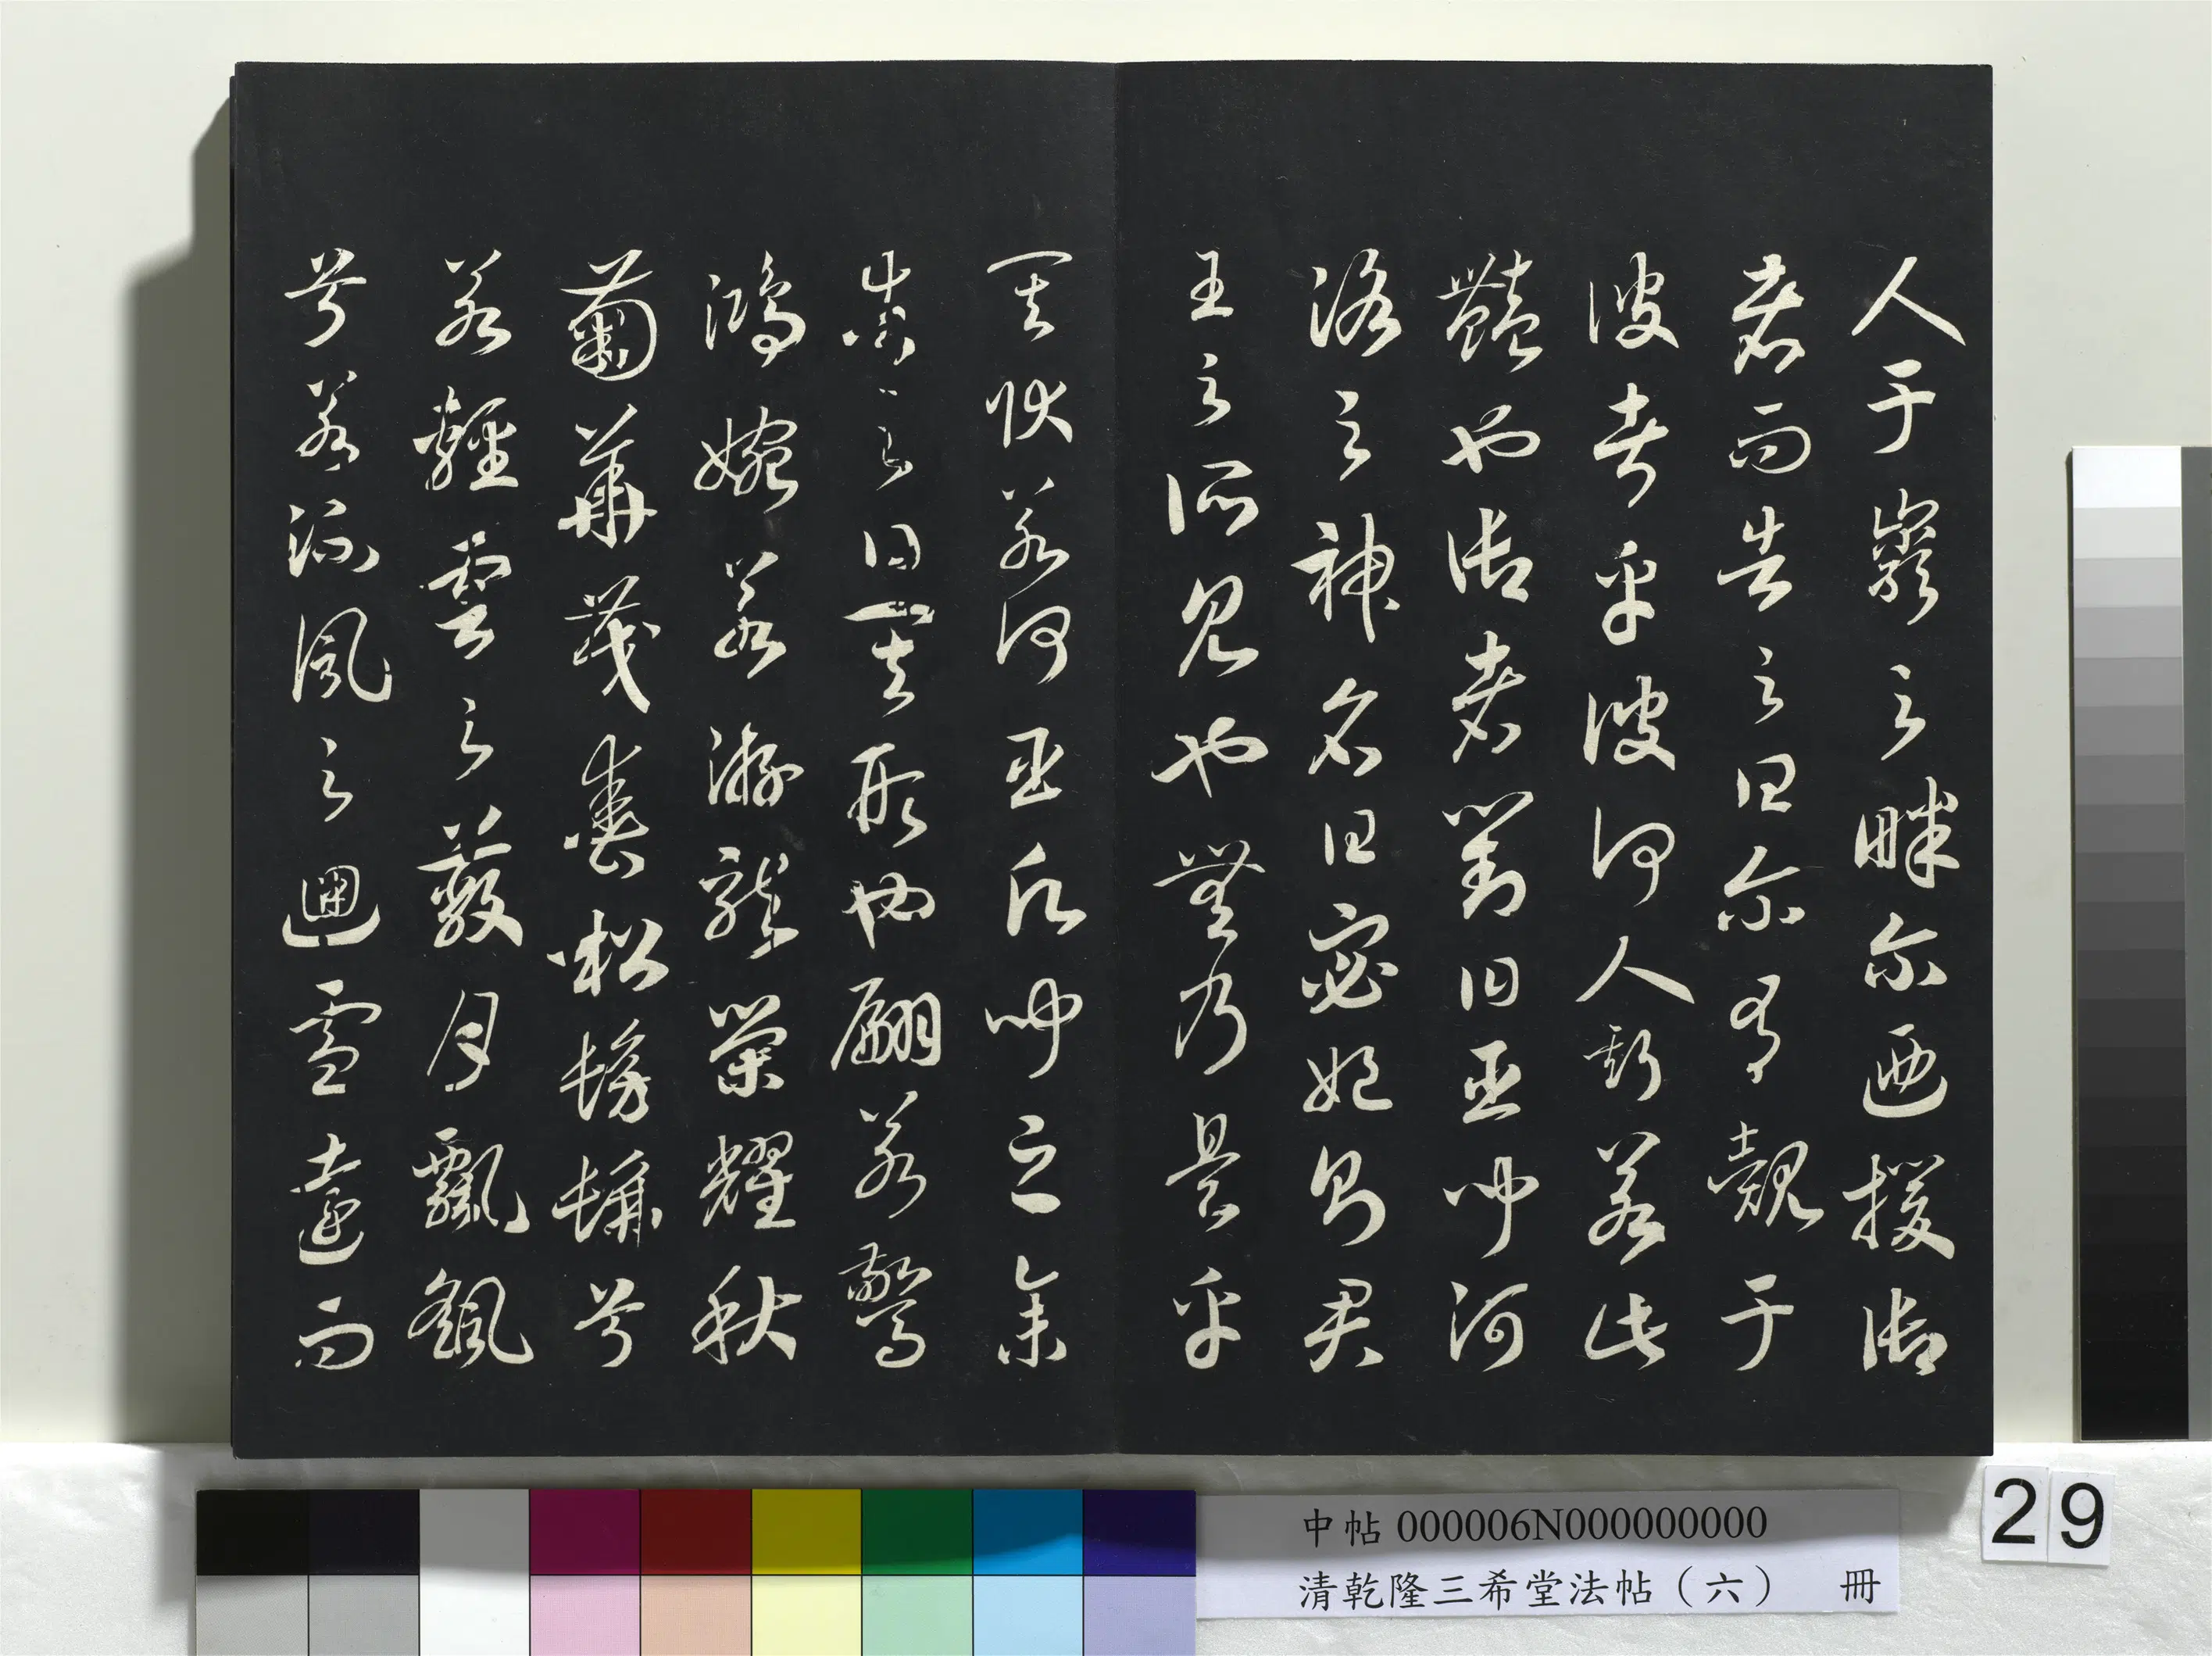 人于巖之畔尔迺援御
者而告之曰尔有覿于
彼者乎彼何人斯若此
豔也御者對曰臣聞河
洛之神名曰宓妃則君
王之所見也無乃是乎
其狀若何臣願聞之余
告之曰其形也翩若驚
鴻婉若游龍榮耀秋
菊華茂春松髣髴兮
若輕雲之蔽月飄飖
兮若流風之迴雪遠而
中帖 000006N000000000
清乾隆三希堂法帖（六） 冊
29